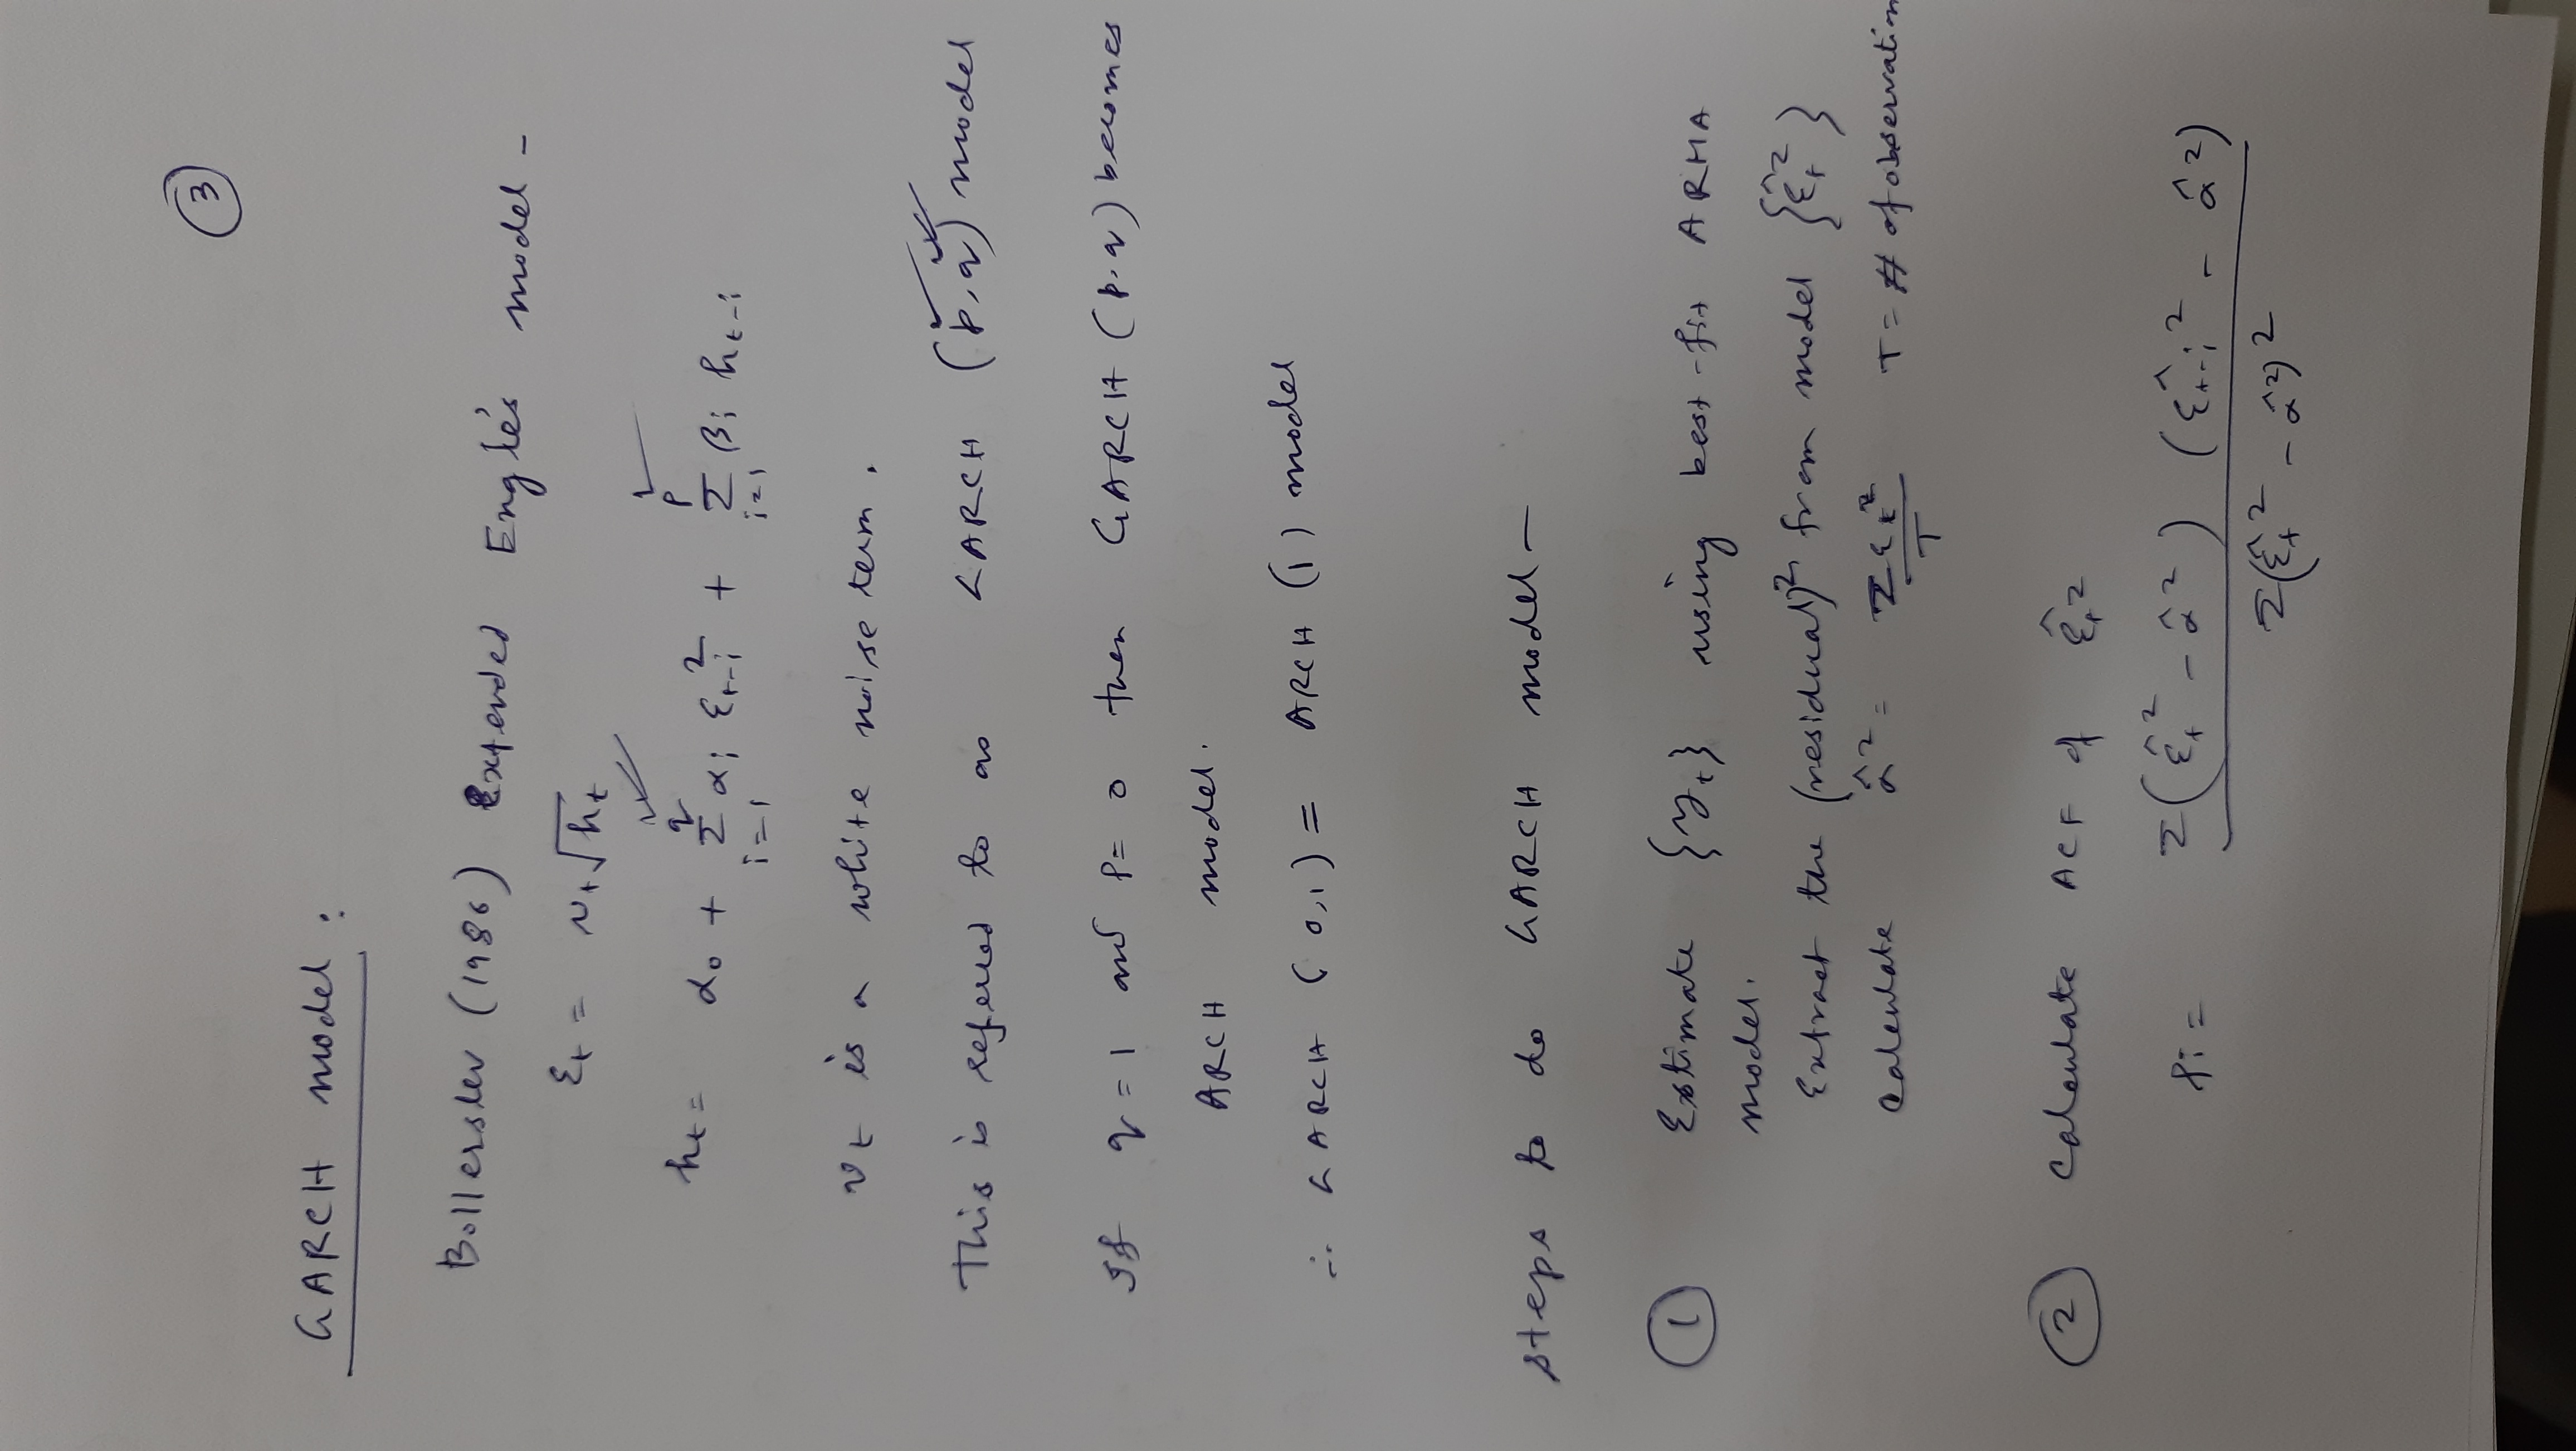 3
GARCH model :
Bollerslev (1986) Extended Engle's model -
εt = vt√ht
ht = α0 + Σ(i=1 to q) αi ε²t-i + Σ(i=1 to p) βi ht-i
vt is a white noise term.
This is referred to as GARCH (p,q) model
If q = 1 and p = 0 then GARCH (p,q) becomes
ARCH model.
∴ GARCH (0,1) = ARCH (1) model
Steps to do GARCH model –
1 Estimate {yt} using best-fit ARMA
model.
Extract the (residual)² from model {ε̂t²}
Calculate α̂² = Σεt²/T T = # of observation
2 Calculate ACF of ε̂t²
ρi = Σ(ε̂t² - α̂²) (ε̂t-i² - α̂²)
Σ(ε̂t² - α̂²)²